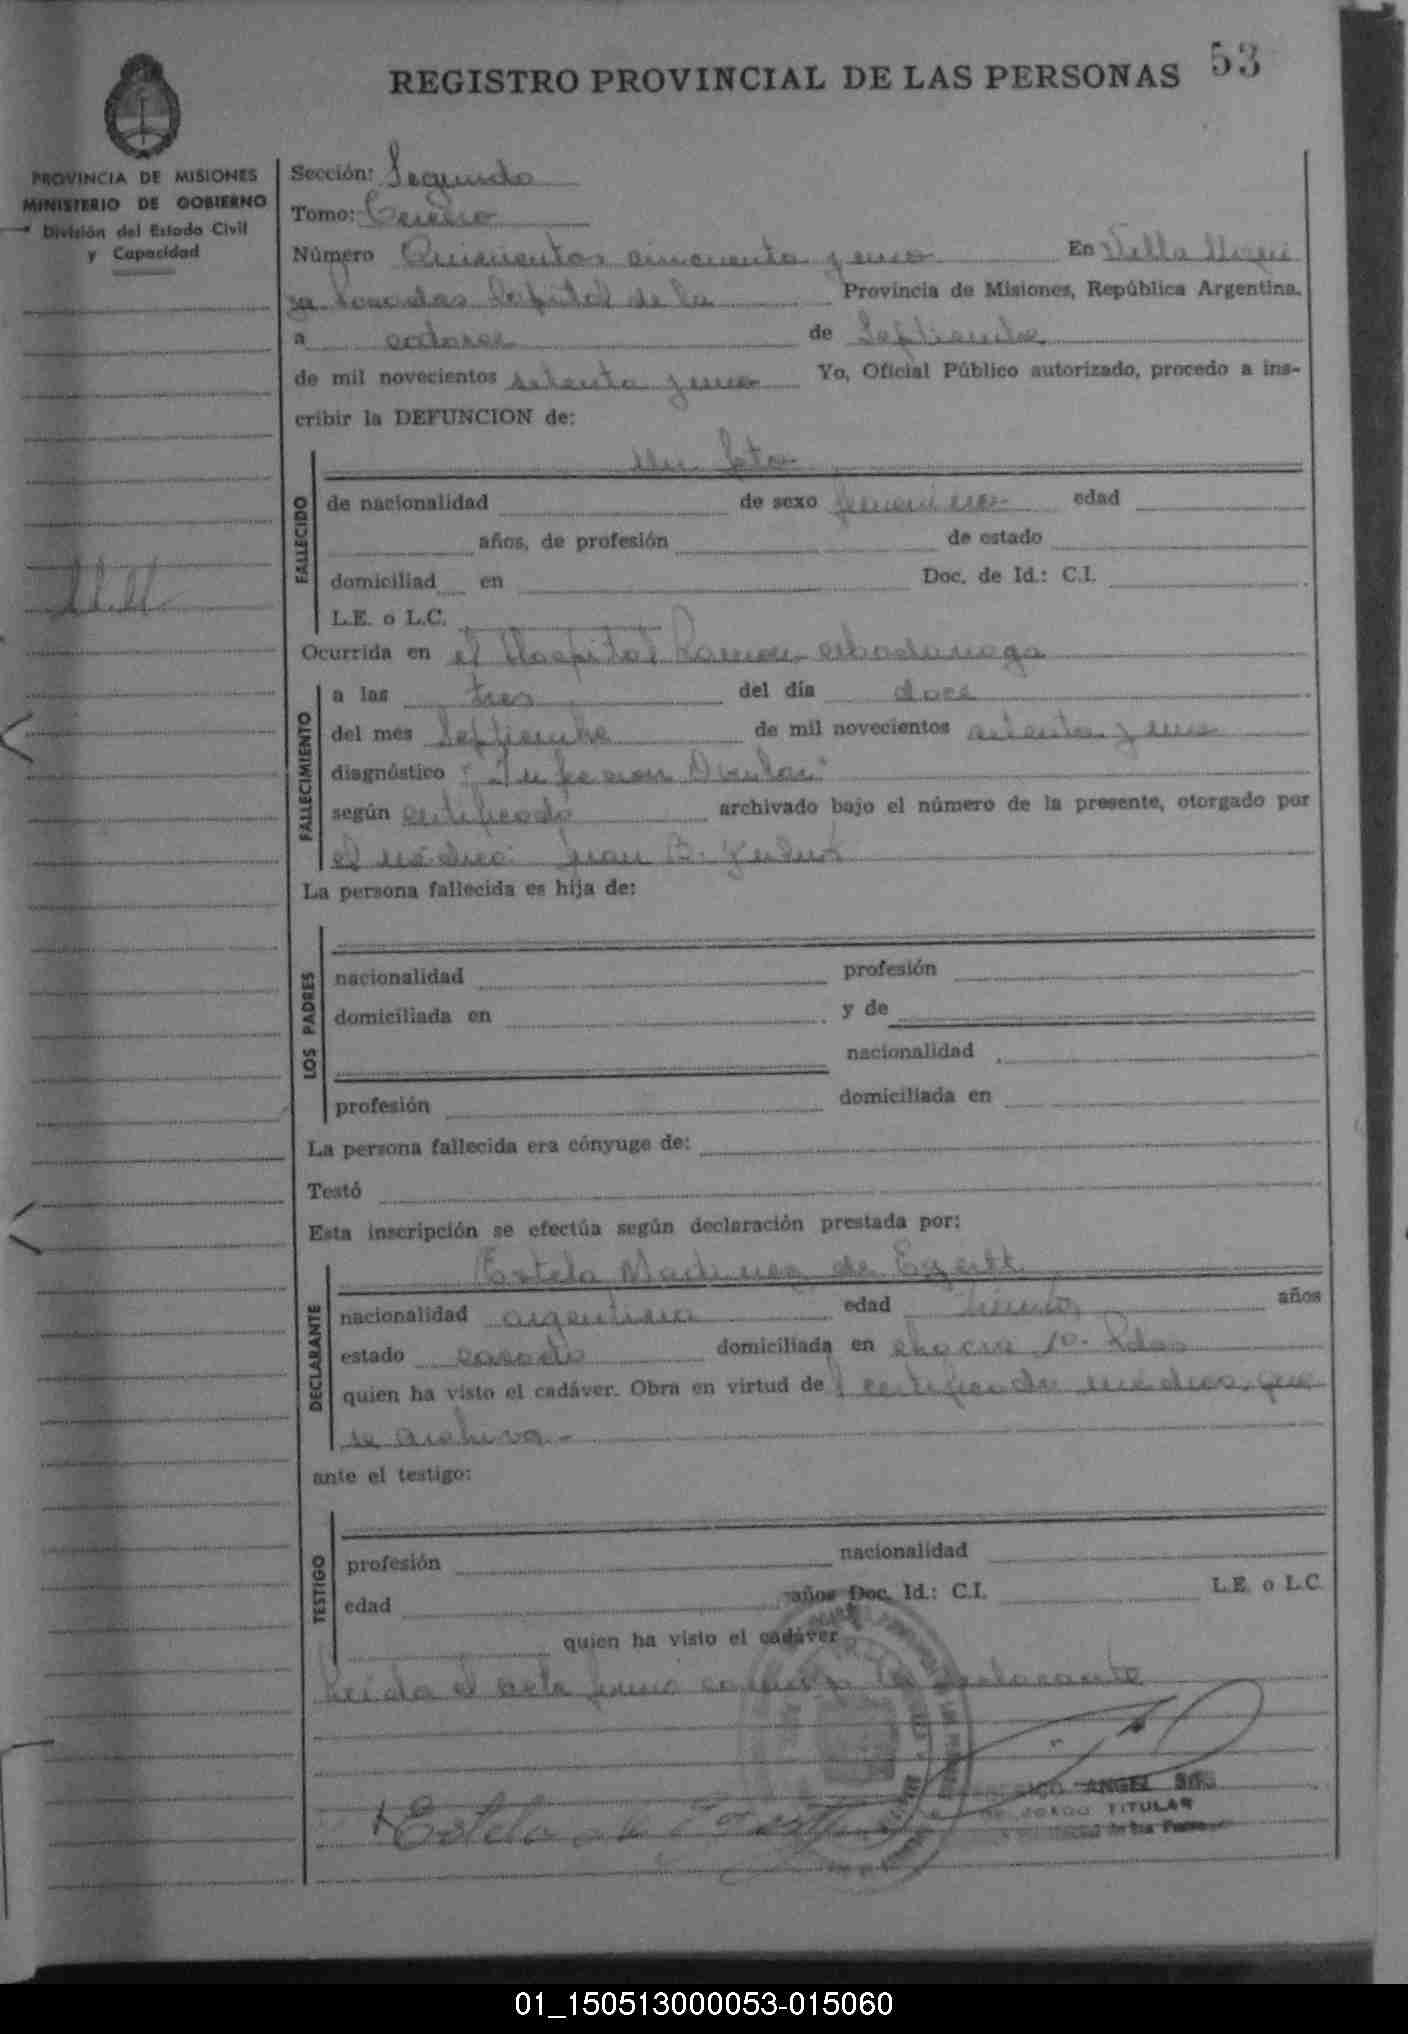 53
REGISTRO PROVINCIAL DE LAS PERSONAS
PROVINCIA DE MISIONES
MINISTERIO DE GOBIERNO
División del Estado Civil
y Capacidad
Sección: Segunda
Tomo: Tercero
Número Quinientos cincuenta y uno En Villa
Posadas Capital de la Provincia de Misiones, República Argentina.
a catorce de Septiembre
de mil novecientos setenta y uno Yo, Oficial Público autorizado, procedo a ins-
cribir la DEFUNCION de:
Un feto
FALLECIDO
de nacionalidad de sexo femenino edad
años, de profesión de estado
domiciliad en Doc. de Id.: C.I.
L.E. o L.C.
Ocurrida en el Hospital Ramon
FALLECIMIENTO
a las tres del día doce
del mes Septiembre de mil novecientos setenta y uno
diagnóstico
según certificado archivado bajo el número de la presente, otorgado por
el médico: Juan B.
La persona fallecida es hija de:
LOS PADRES
nacionalidad profesión
domiciliada en y de
nacionalidad
profesión domiciliada en
La persona fallecida era cónyuge de:
Testó
Esta inscripción se efectúa según declaración prestada por:
Estela de
DECLARANTE
nacionalidad argentina edad años
estado casada domiciliada en chacra
quien ha visto el cadáver. Obra en virtud del certificado médico, que
se archiva.-
ante el testigo:
TESTIGO
profesión nacionalidad
edad años Doc. Id.: C.I. L.E. o L.C.
quien ha visto el cadáver
Leida el acta firma conmigo la declarante
ANGEL
TITULAR
Estela de
01_150513000053-015060